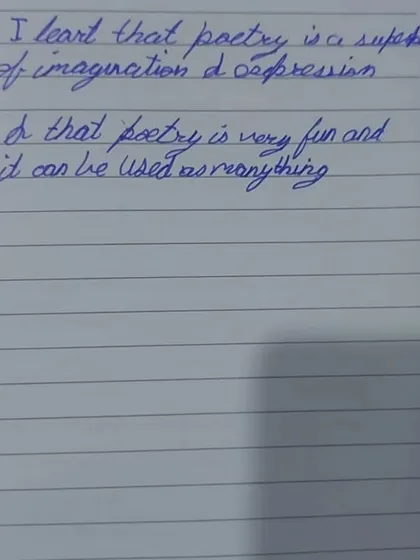 I leart that poetry is a super
of imagination & expression
& that poetry is very fun and
it can be used as manything